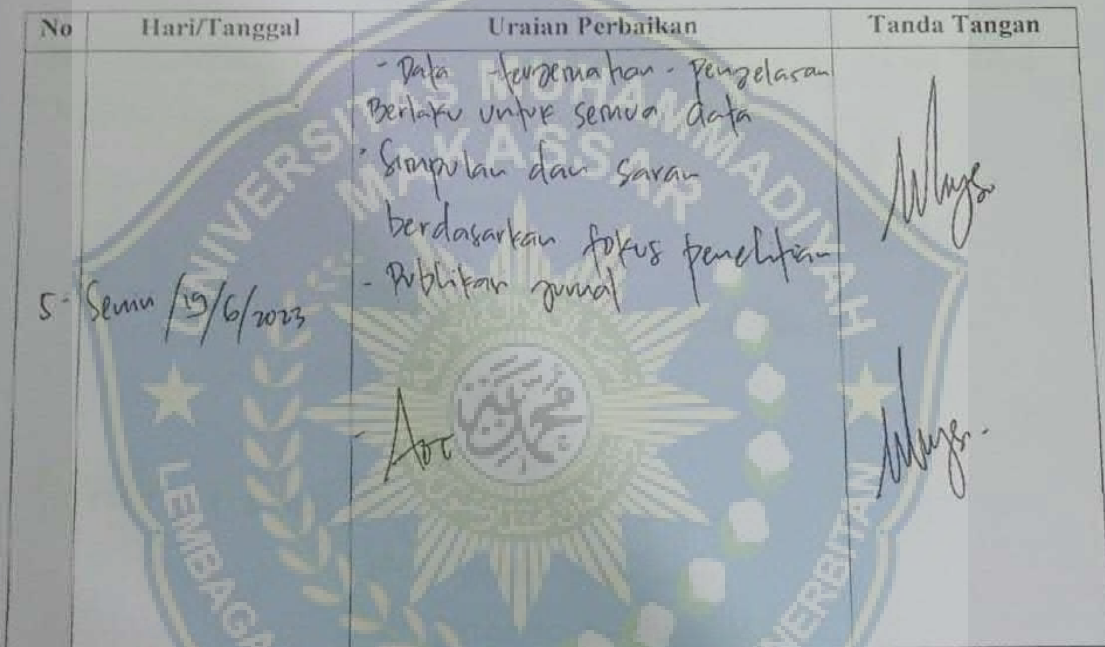 No Hari/Tanggal Uraian Perbaikan Tanda Tangan
- Data - terjemahan - Penjelasan
Berlaku untuk semua data
- Simpulan dan saran
berdasarkan fokus penelitian
- Publikan jurnal
5- Senin /19/6/2023
- Acc
UNIVERSITAS MUHAMMADIYAH
MAKASSAR
LEMBAGA
NERBITAN